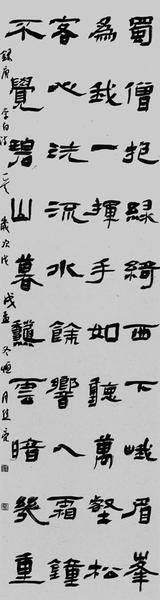 蜀僧抱綠綺西下峨眉峯
為我一揮手如聽萬壑松
客心洗流水餘響入霜鐘
不覺碧山暮龝雲暗幾重
錄唐李白詩一首歲次戊戌孟冬